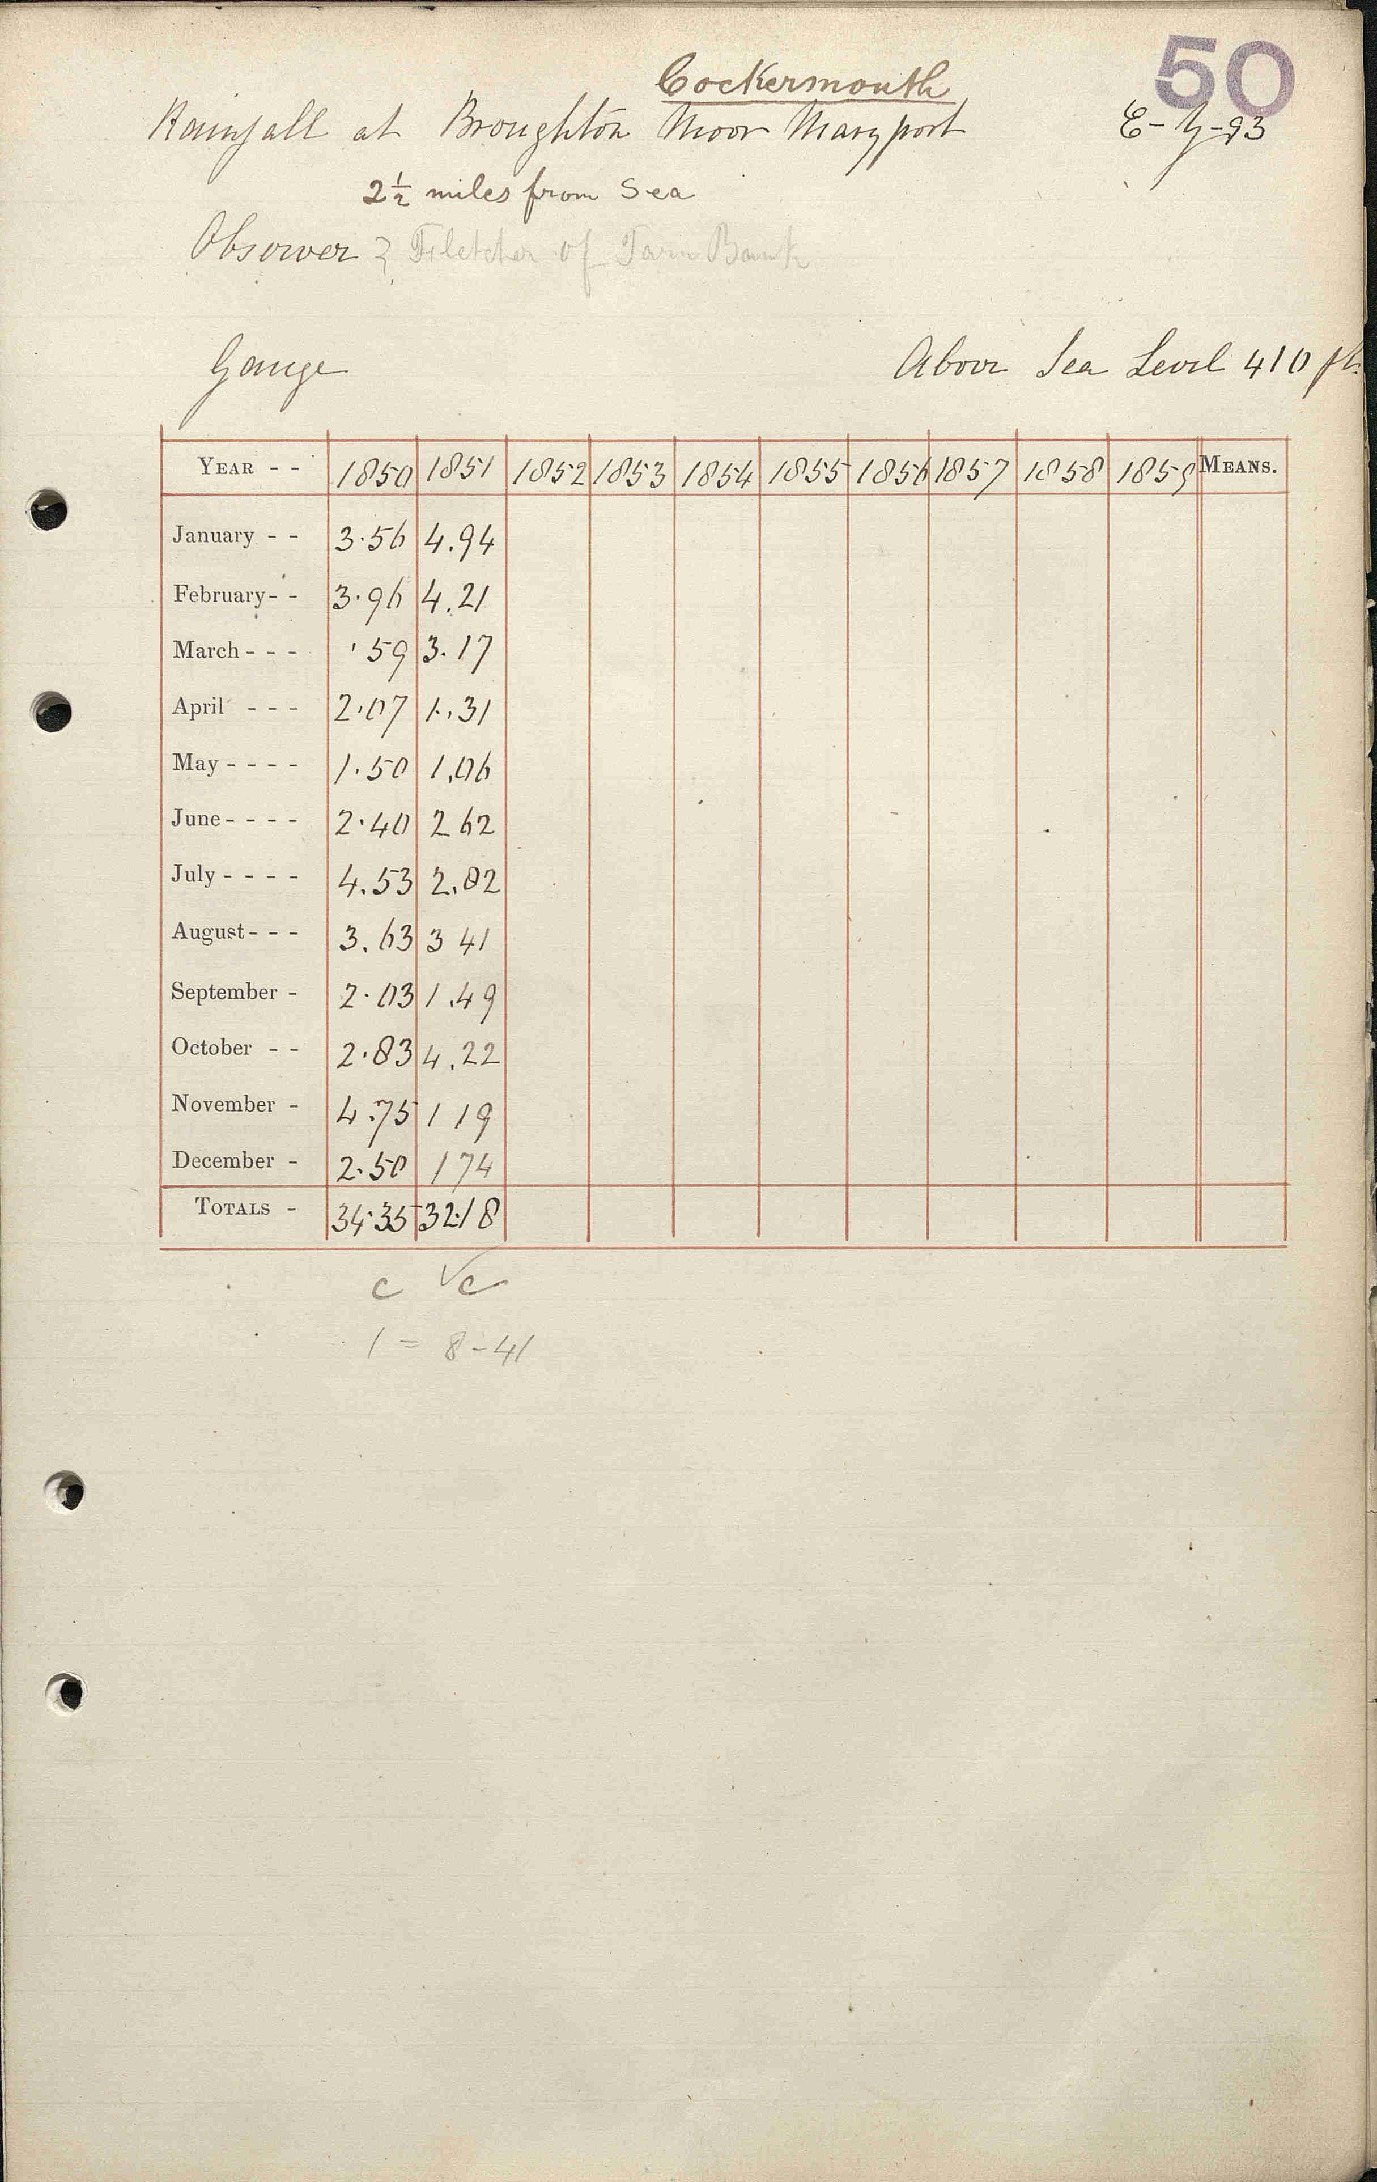 50
Cockermouth
Rainfall at Broughton Moor Maryport
2½ miles from Sea
Observer Fletcher of Tarn Bank
Gauge Above Sea Level 410 ft.
YEAR - - 1850 1851 1852 1853 1854 1855 1856 1857 1858 1859 MEANS.
January - - 3.56 4.94
February - - 3.96 4.21
March - - - .59 3.17
April - - - 2.07 1.31
May - - - - 1.50 1.06
June - - - - 2.40 2 62
July - - - - 4.53 2.82
August - - - 3.63 3 41
September - 2.03 1.49
October - - 2.83 4.22
November - 4.75 1 19
December - 2.50 1 74
TOTALS - 34.35 32.18
c √c
1 = 8-41